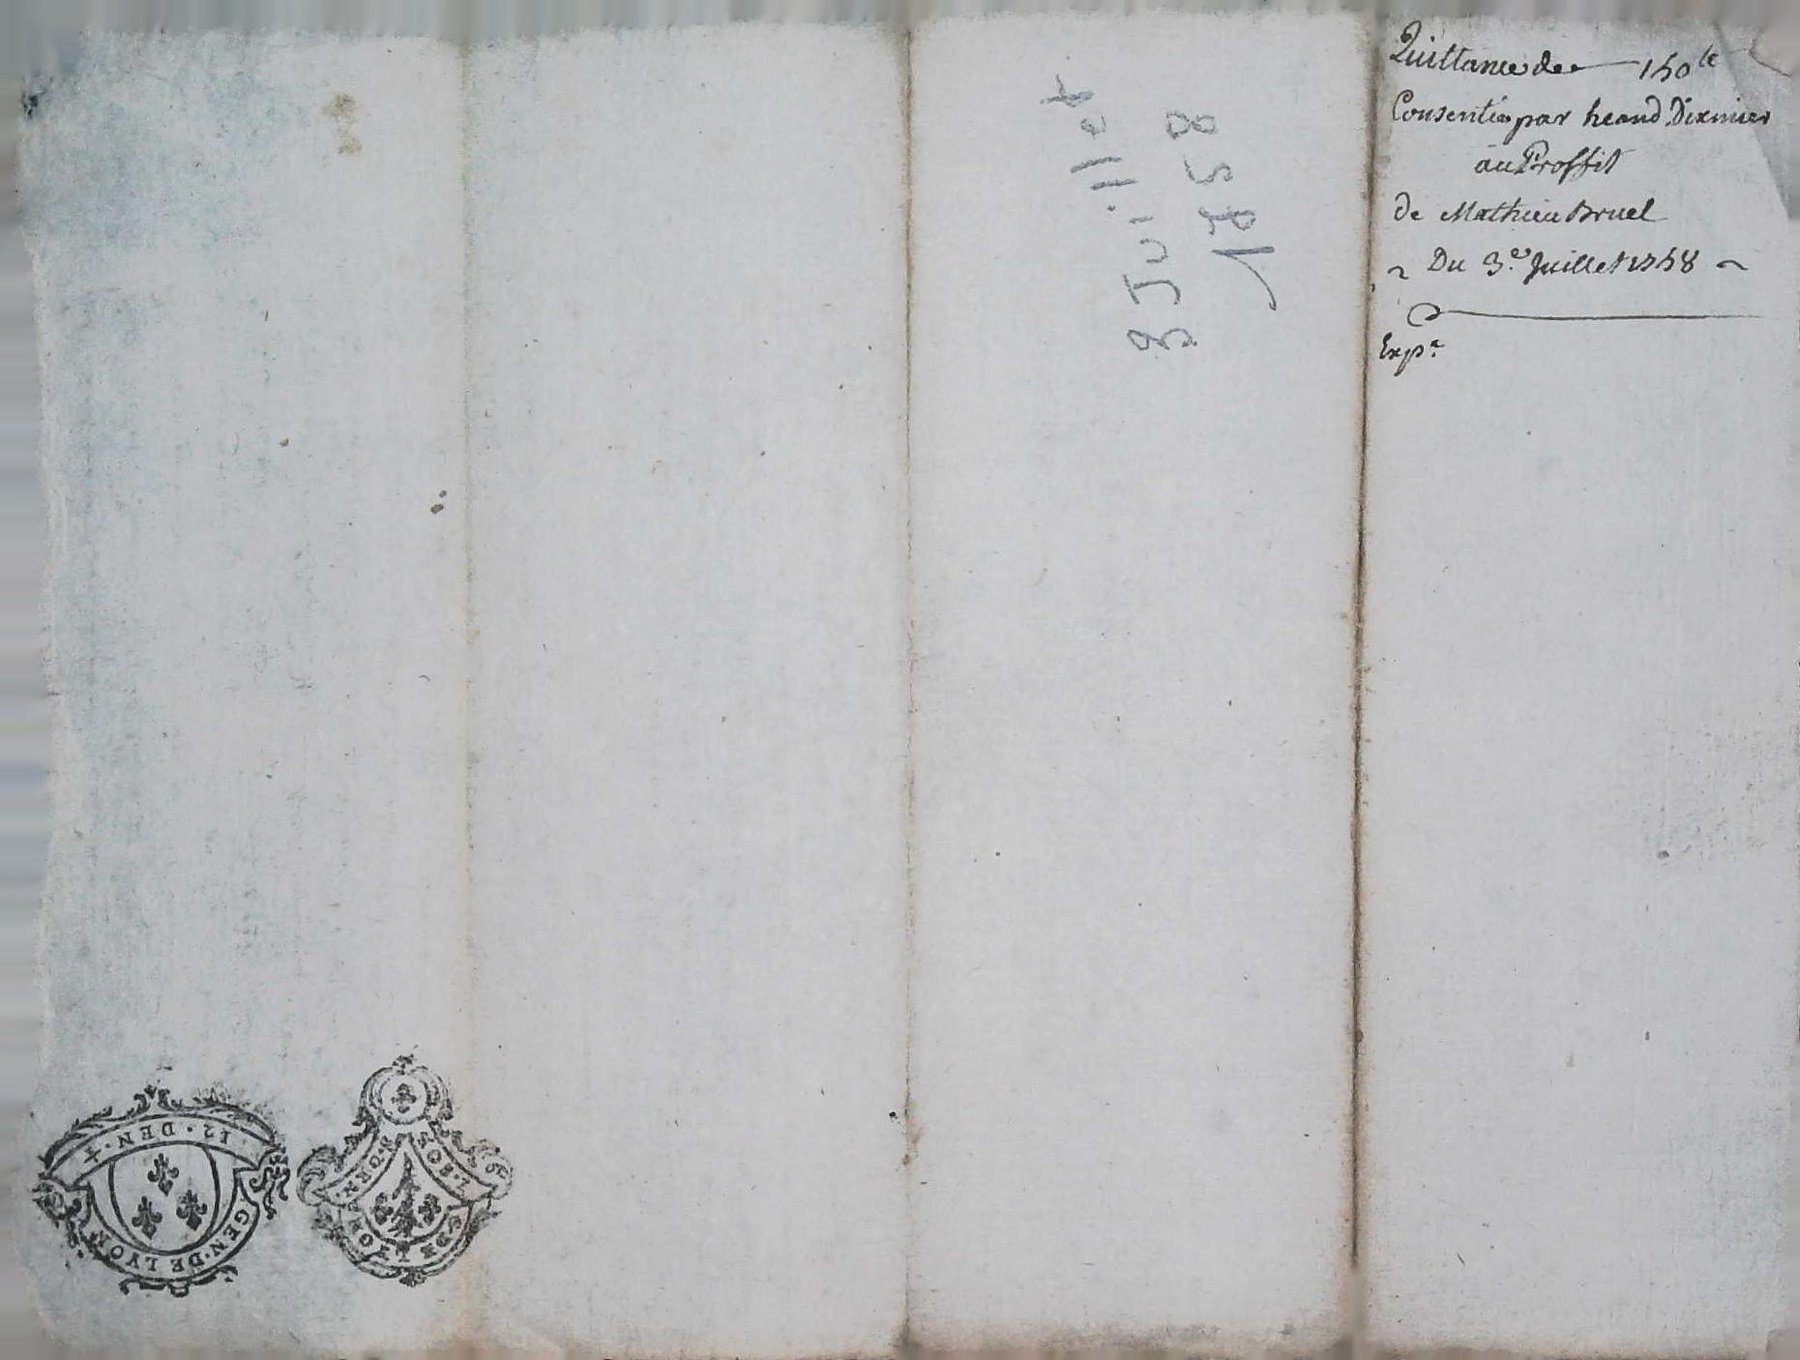 Quittance de 150lt
Consentie par heand Dixmier
au Proffit
de Mathieu Bruel
Du 3e Juillet 1758
Expe
3 Juillet
1758
12. DEN. 4
GEN. DE LYON